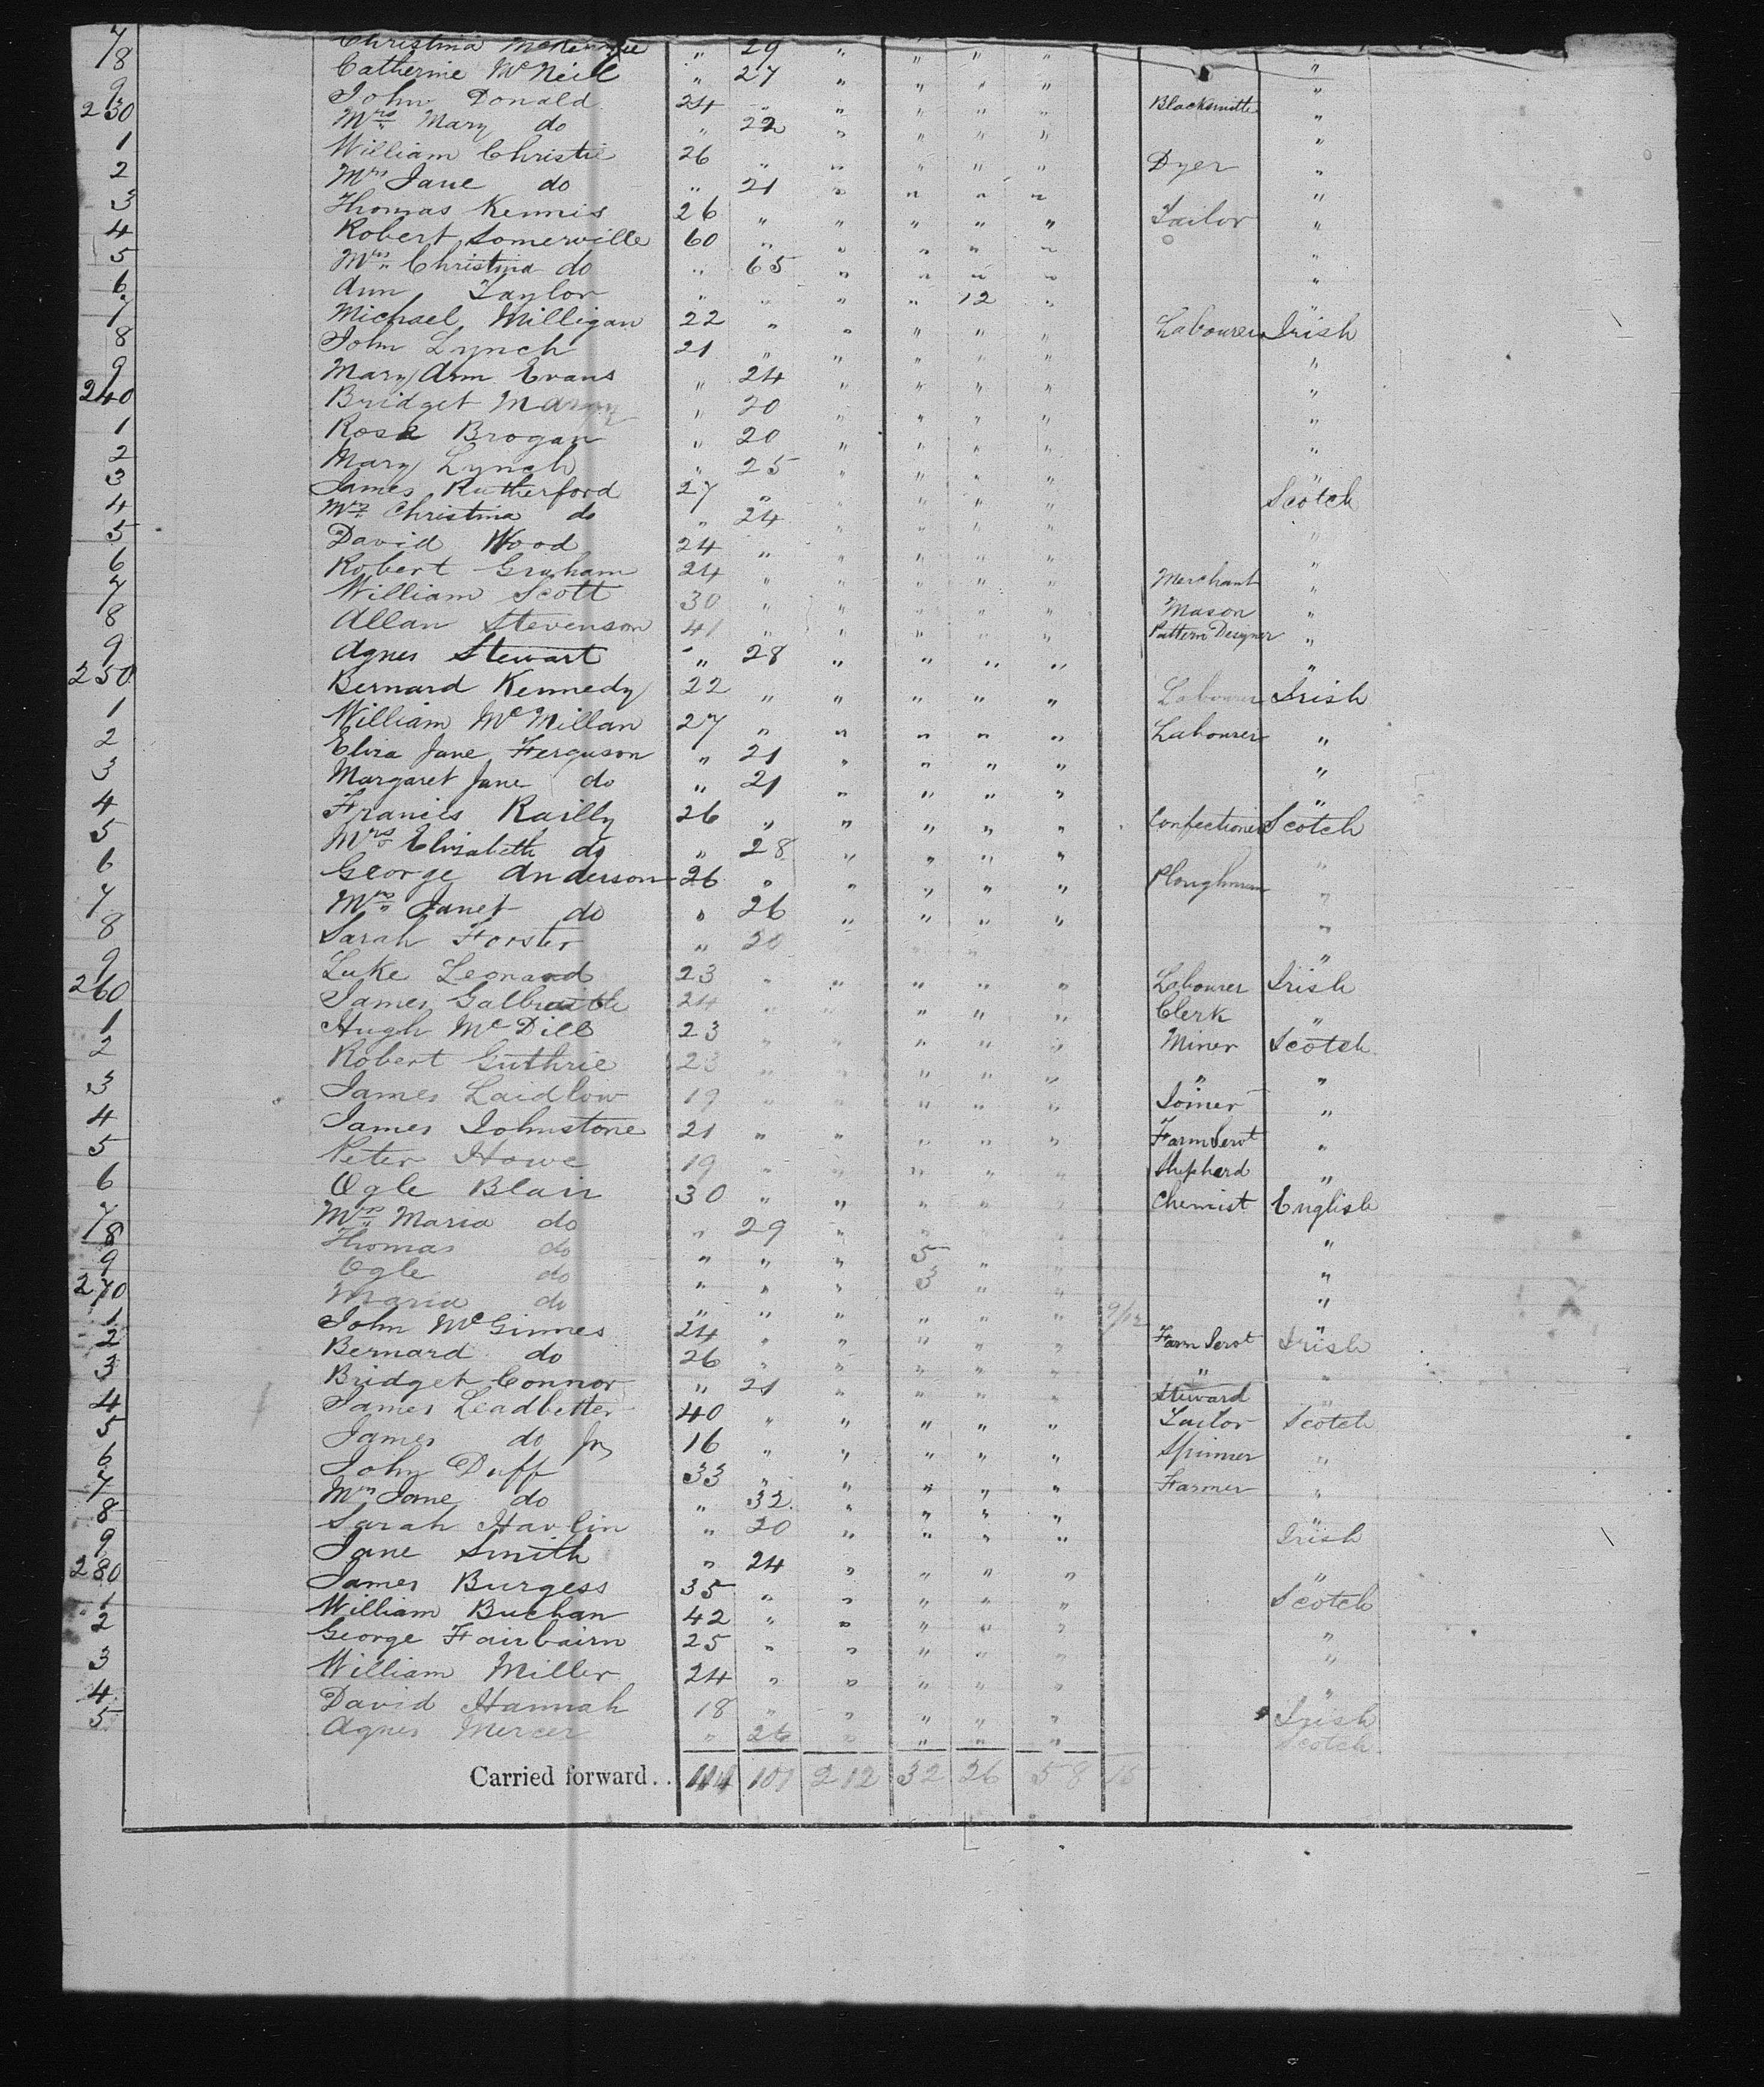 7 Christina McKenzie " 29 " " " " "
8 Catherine McNeill " 27 " " " " "
9 John Donald 24 " " " " " Blacksmith "
230 Mrs Mary do " 22 " " " " "
1 William Christie 26 " " " " " Dyer "
2 Mrs Jane do " 21 " " " " "
3 Thomas Kennis 26 " " " " " Tailor "
4 Robert Somerville 60 " " " " " "
5 Mrs Christina do " 65 " " " " "
6 Ann Taylor " " " " 12 " "
7 Michael Milligan 22 " " " " " Labourer Irish
8 John Lynch 21 " " " " " "
9 Mary Ann Evans " 24 " " " " "
240 Bridget " 20 " " " " "
1 Rose Brogan " 20 " " " " "
2 Mary Lynch " 25 " " " " "
3 James Rutherford 27 " " " " " Scotch
4 Mrs Christina do " 24 " " " " "
5 David Wood 24 " " " " " "
6 Robert Graham 24 " " " " " Merchant "
7 William Scott 30 " " " " " Mason "
8 Allan Stevenson 41 " " " " " Pattern Designer "
9 Agnes Stewart " 28 " " " " "
250 Bernard Kennedy 22 " " " " " Labourer Irish
1 William McMillan 27 " " " " " Labourer "
2 Eliza Jane Ferguson " 21 " " " " "
3 Margaret Jane do " 21 " " " " "
4 Francis Railly 26 " " " " " Confectioner Scotch
5 Mrs Elizabeth do " 28 " " " " "
6 George Anderson 26 " " " " " Ploughman "
7 Mrs Janet do " 26 " " " " "
8 Sarah Forster " 20 " " " " "
9 Luke Leonard 23 " " " " " Labourer Irish
260 James Galbraith 24 " " " " " Clerk "
1 Hugh McDill 23 " " " " " Miner Scotch
2 Robert Guthrie 23 " " " " " " "
3 James Laidlow 19 " " " " " Joiner "
4 James Johnstone 21 " " " " " Farm Servt "
5 Peter Howe 19 " " " " " Shepherd "
6 Ogle Blair 30 " " " " " Chemist English
7 Mrs Maria do " 29 " " " " "
8 Thomas do " " " 5 " " "
9 Ogle do " " " 3 " " "
270 Maria do " " " " " " 9/12 "
1 John McGinnes 24 " " " " " Farm Servt Irish
2 Bernard do 26 " " " " " " "
3 Bridget Connor " 21 " " " " Steward "
4 James Leadbetter 40 " " " " " Tailor Scotch
5 James do Jr 16 " " " " " Spinner "
6 John Duff 33 " " " " " Farmer "
7 Mrs Jane do " 32 " " " " "
8 Sarah Havlin " 20 " " " " Irish
9 Jane Smith " 24 " " " " "
280 James Burgess 35 " " " " " Scotch
1 William Buchan 42 " " " " " "
2 George Fairbairn 25 " " " " " "
3 William Miller 24 " " " " " "
4 David Hannah 18 " " " " " Irish
5 Agnes Mercer " 26 " " " " Scotch
Carried forward.. 111 101 212 32 26 58 15